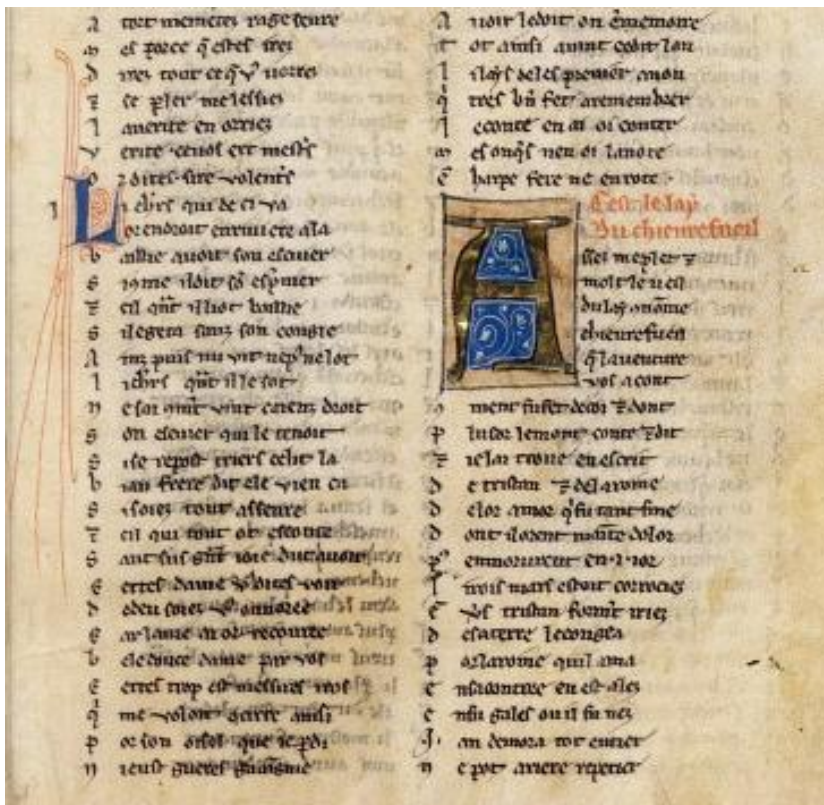 A tort
m es force q̃ estes irez
d irez tout ce q̃ vorrez
l a verite en orriez
v erite
o r dites sire volentrs
L i chrs qui de ci va
o rendroit en riviere ala
b aillie avoit son escuier
s i ome
⁊ cil qnt il lot baillie
s i le geta sanz son congie
A inz puis nu vit
l i chrs qnt il le sot
s on escuier qui le tenoit
s i se repost triers celit la
b iau frere dit ele vien ca
s i soiez tout asseure
⁊ cil qui tout ot escoute
s aut sus gnt ioie dut avoir
c ertes dame v dites voir
d e deu soiez v onoree
c ar lame avez recouvree
b ele douce dame par vos
c ertes trop est messires
q̃ me voloit ocirre ausi
p or son oisel que ie pdi
n i eust gueres gaaignie
A voir lodoit on ememoire
t ot ainsi avint ce dit lon
l i lays de les premier a non
q̃ tres bn fet a remembrer
l e conte en ai oi conter
m es onqs nen oi la note
e n harpe fere ne en rote
C est le lay
Du chievrefueil
A ssez me plest ⁊
molt le vueil
du lay q̃ nõme
chievrefueil
q̃ la venture
vos acont
c õment fu fet de coi ⁊ dont
p lusor le mont conte ⁊ dit
⁊ ie lai trove en escrit
d e tristan ⁊ de la roine
d e lor amor q̃ fu tant fine
d ont il orent mainte dolor
p us en morurent en .i. ior
l i rois mars estoit corrociez
e vs tristan formt iriez
d e sa terre le congea
p or la roine qui lama
e n sa contree en est alez
e n su gales ou il fu nez
.I. an demora tot entier
n e pot ariere reperier